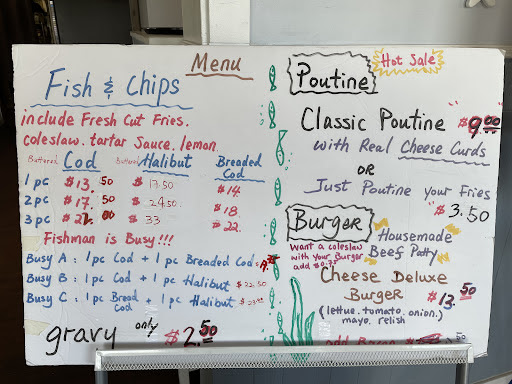 Menu
Fish & Chips
include Fresh Cut Fries.
coleslaw. tartar Sauce. lemon
Battered Cod
Battered Halibut
Breaded Cod
1 pc $13.50 $17.50 $14.
2 pc $17.50 $24.50 $18
3 pc $22.00 $33 $22.
Fishman is Busy!!!
Busy A : 1 pc Cod + 1 pc Breaded Cod :
Busy B : 1 pc Cod + 1 pc Halibut $22.50
Busy C : 1 pc Bread Cod + 1 pc Halibut
gravy only $2.50
Poutine
Hot Sale
Classic Poutine "$9.00"
with Real Cheese Curds
OR
Just Poutine your Fries
"$3.50
Burger
Housemade
Beef Patty
Want a coleslaw
with your Burger
add $0.75
Cheese Deluxe
Burger $13.50
(lettue. tomato. onion.)
mayo. relish
add Bacon